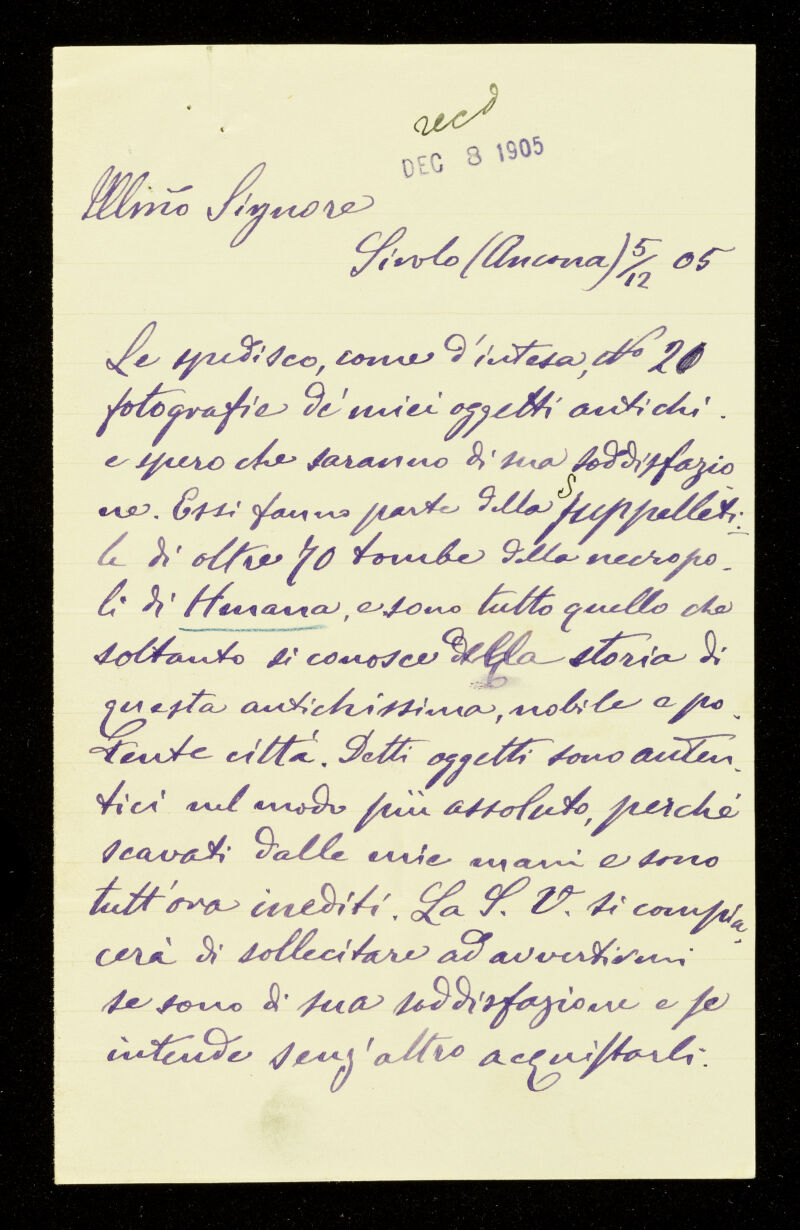 recd
DEC 8 1905
Illm̃o Signore
Sirolo (Ancona) 5/12 05
Le spedisco, come d'intesa, No 20
fotografie de' miei oggetti antichi.
e spero che saranno di sua soddisfazio
ne. Essi fanno parte della Suppelleti.
le di oltre 70 tombe della necropo-
li di Humana, e sono tutto quello che
soltanto si conosce della storia di
questa antichissima, nobile e po-
tente città. Detti oggetti sono auten-
tici nel modo più assoluto, perché
scavati dalle mie mani e sono
tutt'ora inediti. La S. V. si compia-
cerà di sollecitare ad avvertirmi
se sono di sua soddisfazione e se
intende senz'altro acquistarli.